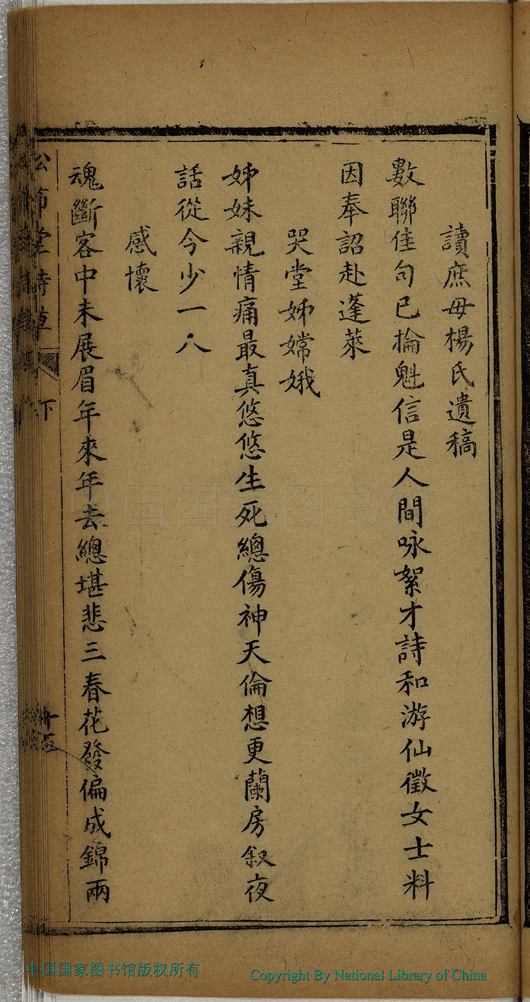 讀庶母楊氏遺稿
數聯佳句已掄魁信是人間咏絮才詩和游仙徵女士料
因奉詔赴蓬萊
哭堂姊嫦娥
姊妹親情痛最真悠悠生死總傷神天倫想更蘭房叙夜
話從今少一人
感懷
魂斷客中未展眉年來年去總堪悲三春花發偏成錦兩
松筠堂詩草
下
中国国家图书馆版权所有
Copyright By National Library of China